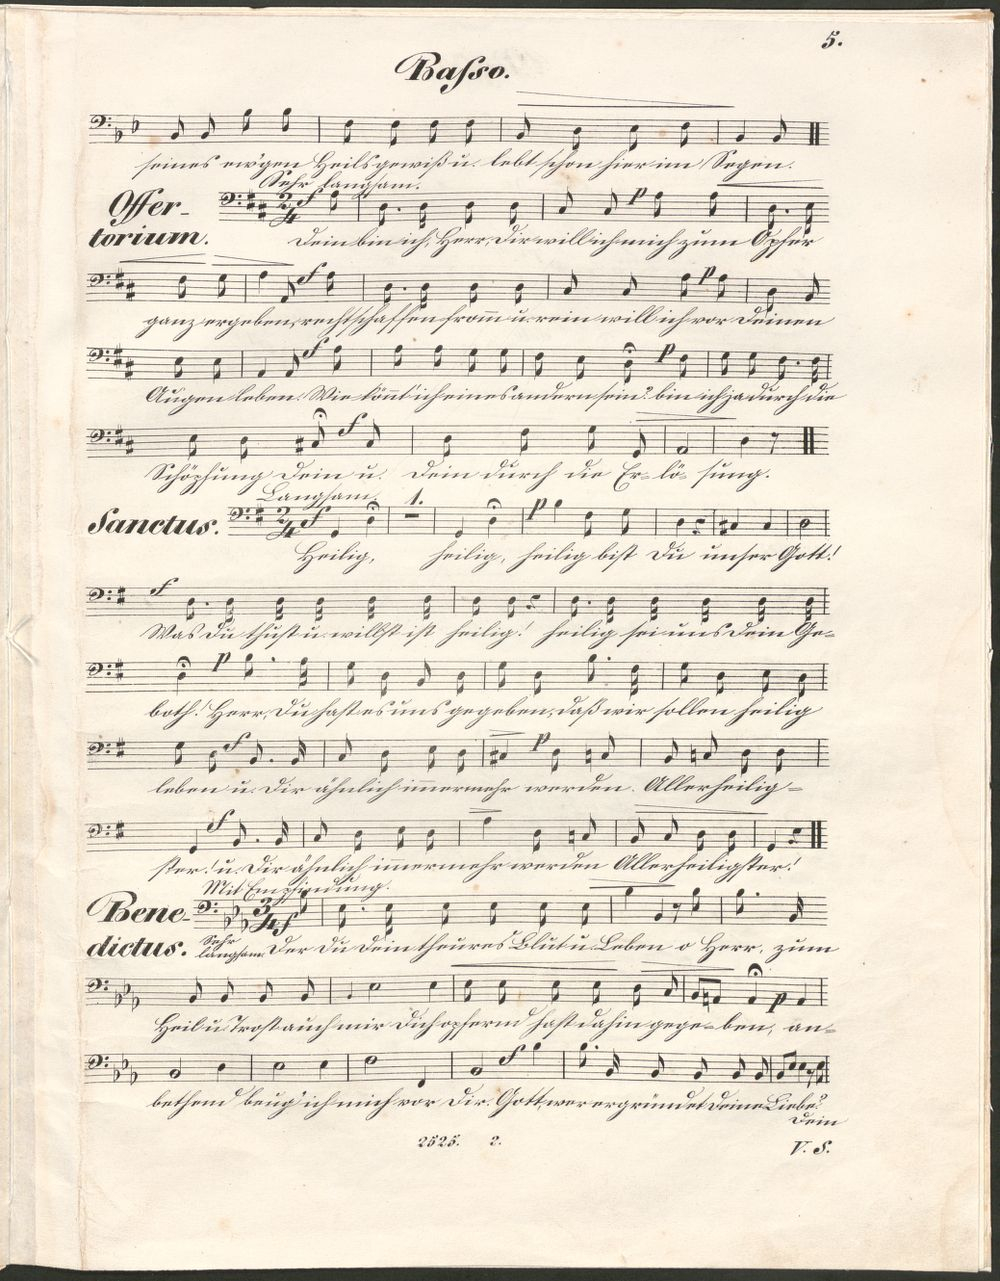 5.
Basso.
seines ew'gen Heils gewiß u. lebt schon hier im Segen.
Sehr langsam.
Offer-
torium.
Dein bin ich, Herr, Dir will ich mich zum Opfer
ganz ergeben, rechtschaffen from̄ u. rein will ich vor Deinen
Augen leben. Wie kön̄t' ich eines andern sein? bin ich ja durch die
Schöpfung Dein u. Dein durch die Er-lö-sung.
Langsam. 1.
Sanctus.
Heilig, heilig, heilig bist Du unser Gott!
Was Du thust u. willst ist heilig! heilig sei uns Dein Ge-
both! Herr, Du hast es uns gegeben, daß wir sollen heilig
leben u. Dir ähnlich im̄ermehr werden. Allerheilig-
ster! u. Dir ähnlich im̄ermehr werden Allerheiligster!
Mit Empfindung.
Bene-
dictus.
Sehr
langsam.
Der Du Dein theures Blut u. Leben o Herr, zum
Heil u. Trost auch mir Dich opfernd hast dahin gege-ben, an-
bethend beug' ich mich vor Dir. Gott, wer ergründet Deine Liebe?
Dein
2525. 2.
V. S.